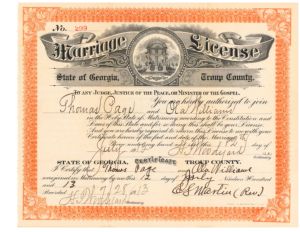 No. 299
Marriage License
State of Georgia, Troup County.
To any Judge, Justice of the Peace, or Minister of the Gospel.
You are hereby authorized to join
Thomas Page and Ola Williams
in the Holy State of Matrimony according to the Constitution and
Laws of this State and for so doing this shall be your License.
And you are hereby required to return this License to me with your
Certificate hereon of the fact and date of the Marriage.
Given under my hand and seal this 12 day of
July 1913
STATE OF GEORGIA. Certificate TROUP COUNTY.
I Certify that Thomas Page and Ola Williams
were joined in Matrimony by me this 12 day of July
and 13
7/25/13 E S Martin (Rev)